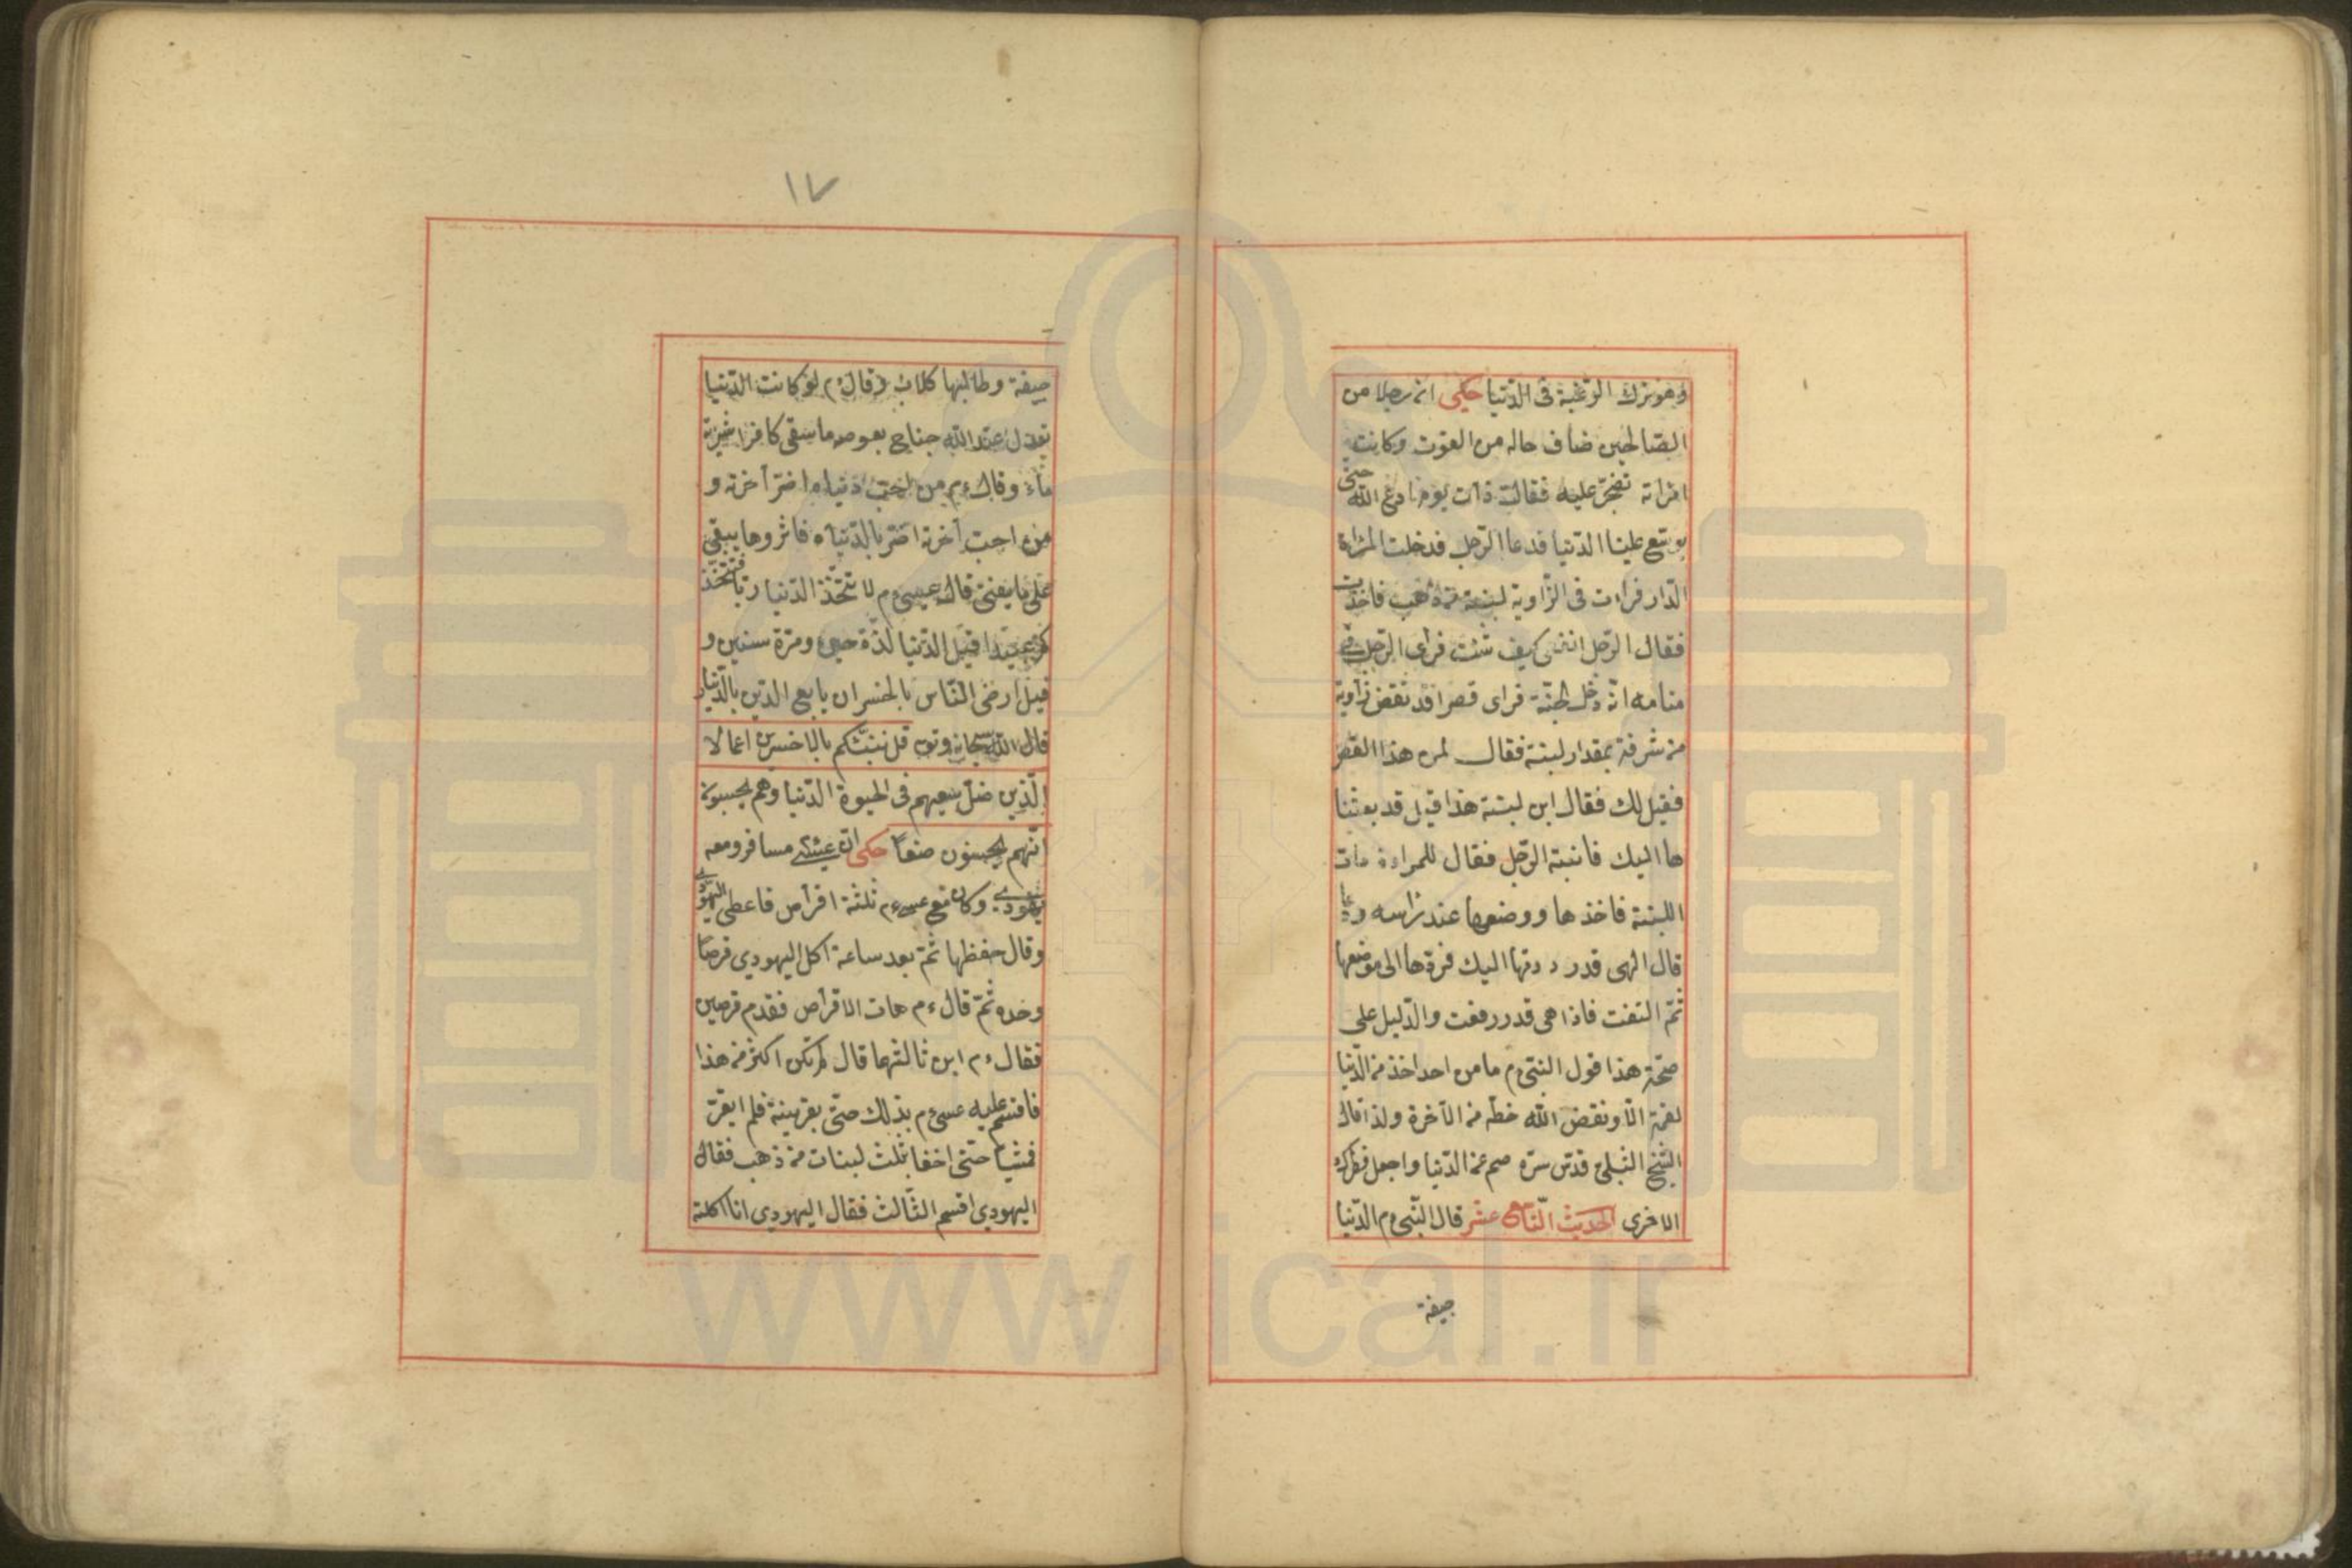 وهو ترك الرغبة فى الدّنيا حكى ان رجلا من
الصّالحين ضاف حاله من القوت وكانت
امراته تضجّر عليه فقالت ذات يوم ادع اللّه حتى
يوسّع علينا الدّنيا فدعا الرّجل فدخلت المراة
الدّار فرات فى الزّاوية لبنة من ذهب فاخذت
فقال الرّجل انفقى كيف شئت فراى الرّجل فى
منامه انّه دخل الجنّة فراى قصرا قد نقض زاوية
من شرفة بمقدار لبنة فقال لمن هذا القصر
فقيل لك فقال اين لبنة هذا قيل قد بعثنا
ها اليك فانبته الرّجل فقال للمراءة هات
اللبنة فاخذها ووضعها عند راسه ودعا
قال الهى قد رددتها اليك فردّها الى موضعها
ثمّ التفت فاذا هى قد رفعت والدّليل على
صحّة هذا قول النبىّ ءم ما من احد اخذ من الدّنيا
لقمة الّا ونقض اللّه حظّه من الآخرة ولذا قال
الشّيخ الشبلى قدّس سرّه صم عن الدّنيا واجعل فطرك
الاخرى الحديث التّاسع عشر قال النّبىّ ءم الدّنيا
جيفة
١٧
جيفة وطالبها كلاب وقال ءم لو كانت الدّنيا
تعدل عند اللّه جناح بعوضه ما سقى كافرا شربة
ماء وقال ءم من احبّ دنياه اضرّ آخرته و
من احب آخرته اضرّ بالدّنياه فاثروها يبقى
على ما يفنى قال عيسى ءم لا تتّخذ الدّنيا ربّا فتتّخذ
كم عبيدا قيل الدّنيا لذّة حين ومرّة سنين و
قيل ارضى النّاس بالخسران بايع الدّين بالدّنيا
قال اللّه سبحانه وتع قل ننبّئكم بالاخسرين اعمالا
الّذين ضلّ سعيهم فى الحيوة الدّنيا وهم يحسبون
انّهم يحسنون صنعًا حكى انّ عيسى مسافر ومعه
يهودى وكان مع عيسى ءم ثلثة اقراص فاعطى اليهودى
وقال حفظها ثمّ بعد ساعة اكل اليهودى قرصًا
وحده ثمّ قال ءم هات الاقراص فقدم قرصين
فقال ءم اين ثالثهما قال لم تكن اكثر من هذا
فاقسم عليه عيسى ءم بذلك حتّى بقرينة فلم ايقرّ
فمشيا حتى اخفا بثلث لبنات من ذهب فقال
اليهودى اقسم الثّالث فقال اليهودى انا اكلته
www.ical.ir